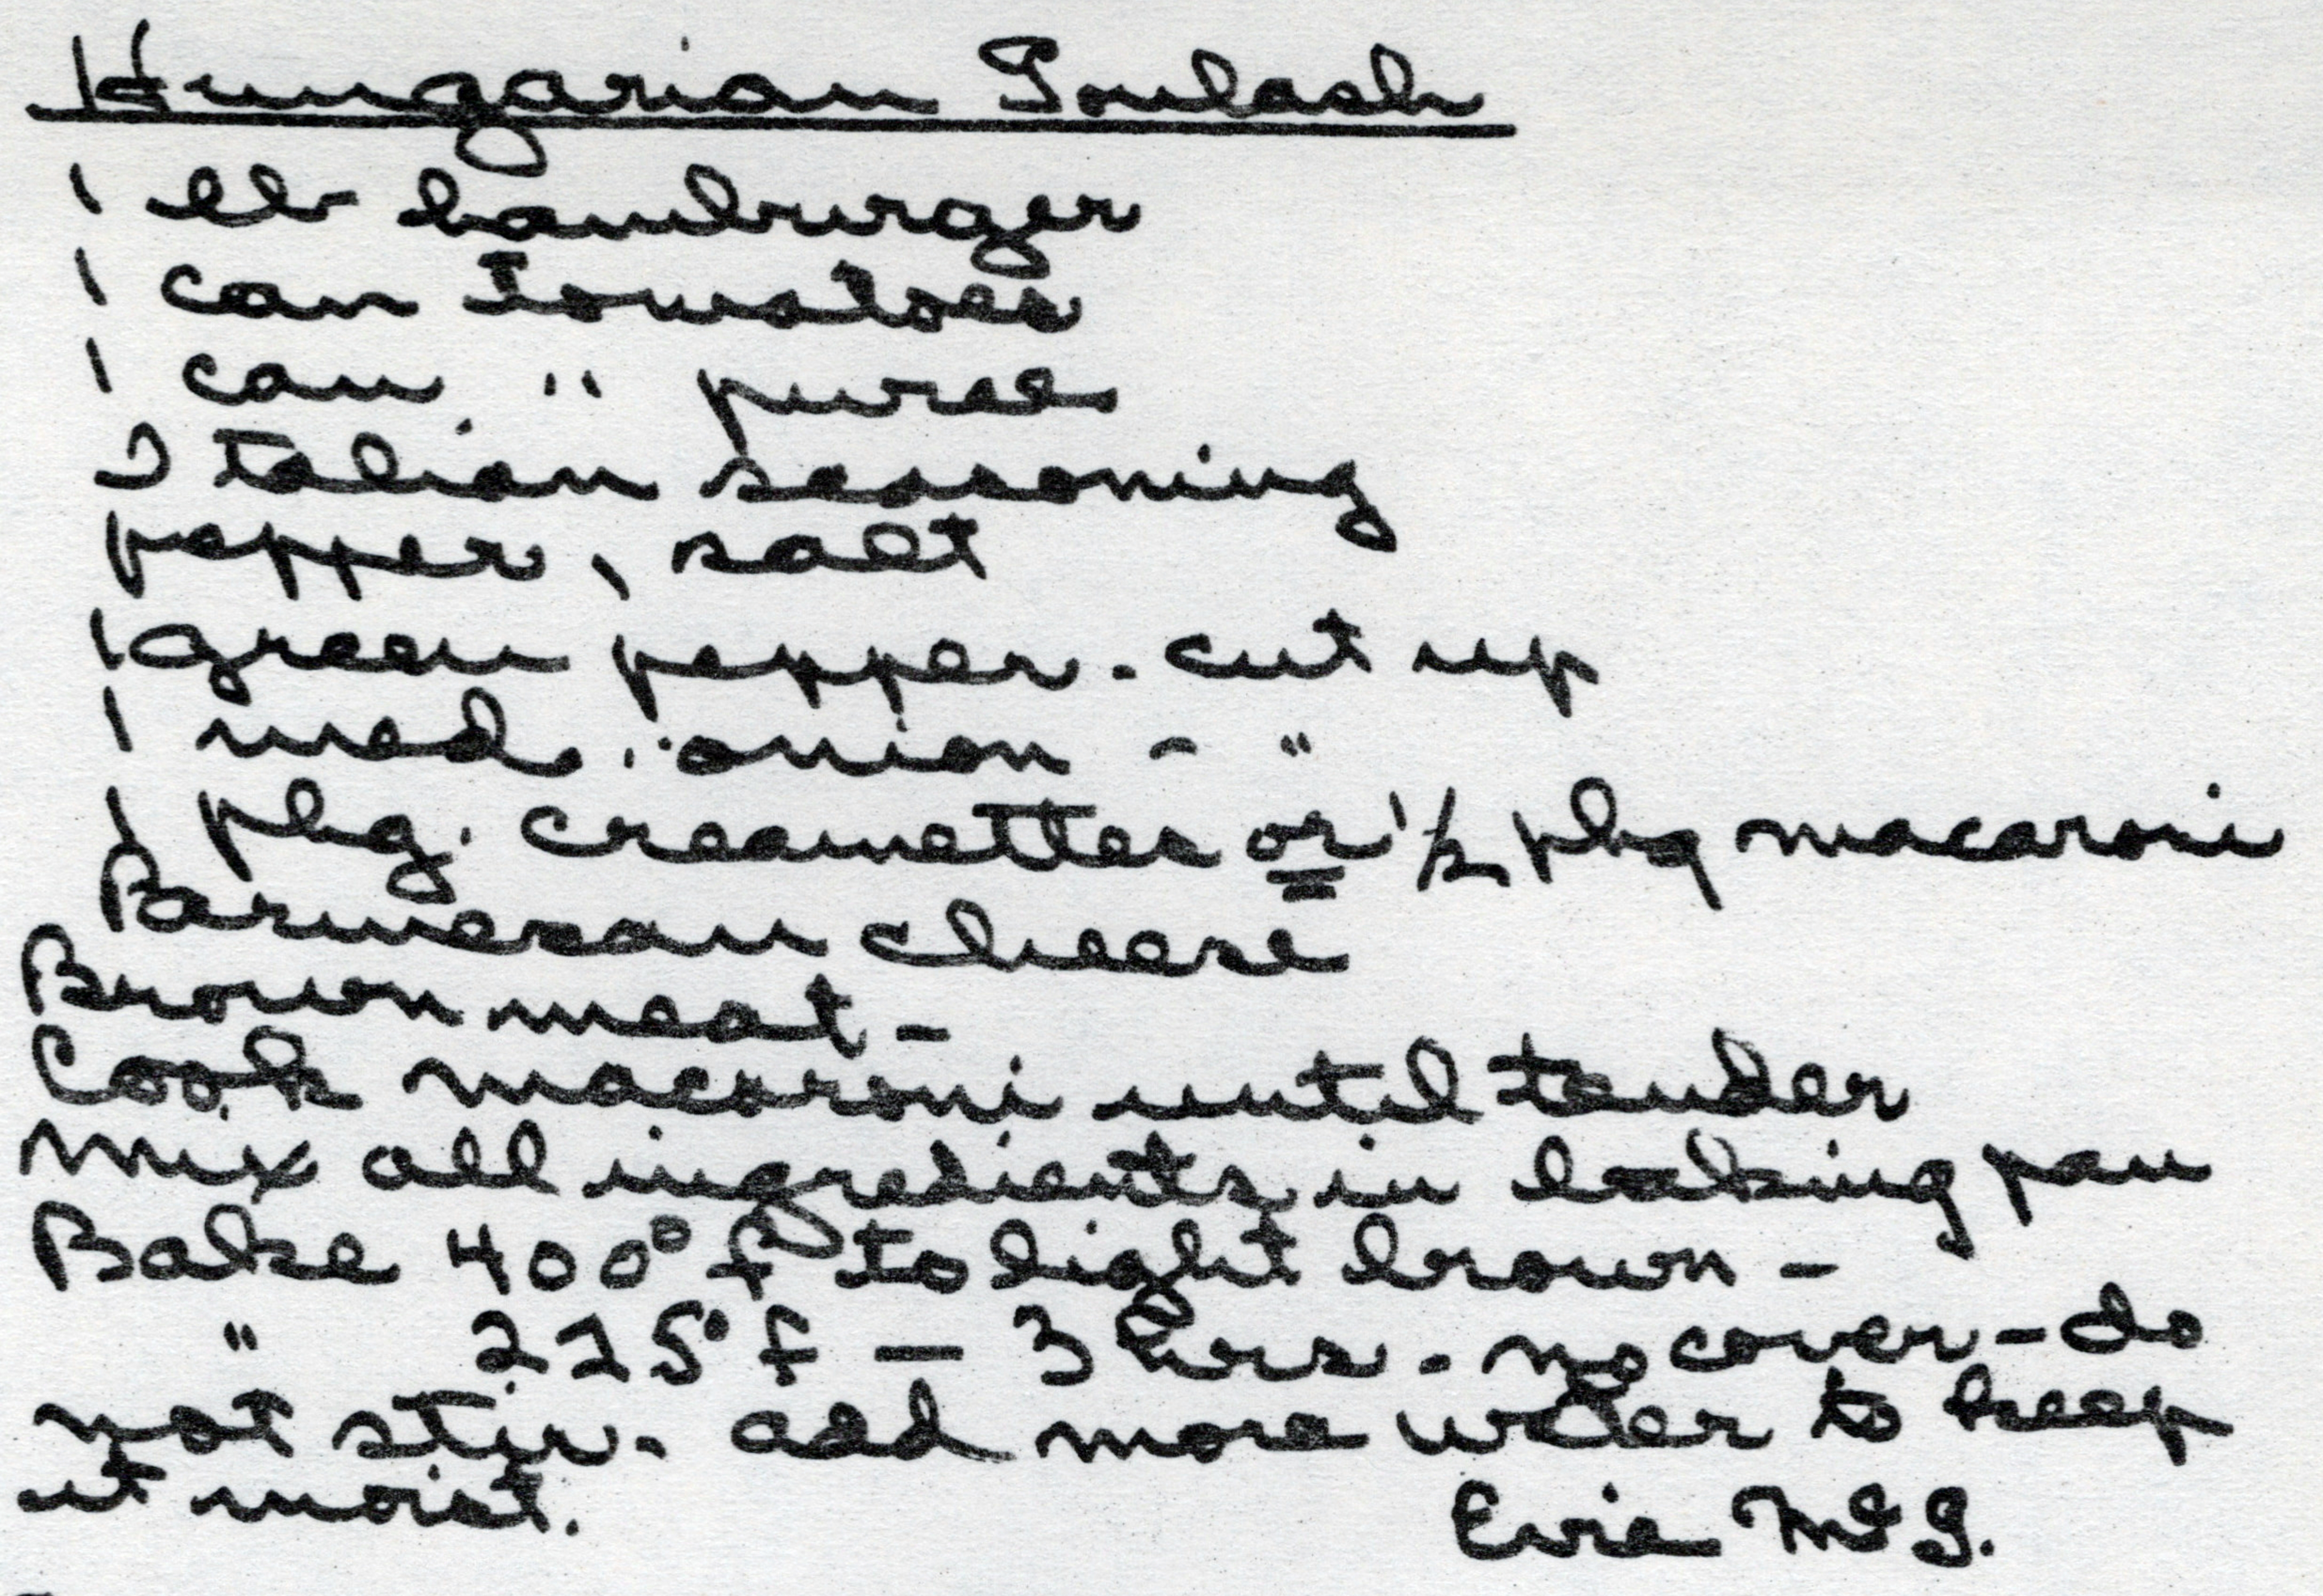 Hungarian Goulash
1 lb hamburger
1 can tomatoes
1 can " puree
Italian seasoning
pepper, salt
1 green pepper - cut up
1 med. onion - "
1 pkg. creamettes or 1/2 pkg macaroni
Parmesan cheese
Brown meat -
Cook macaroni until tender
Mix all ingredients in baking pan
Bake 400° f to light brown -
" 225° f — 3 hrs. no cover - do
not stir. add more water to keep
it moist.
Evie McG.